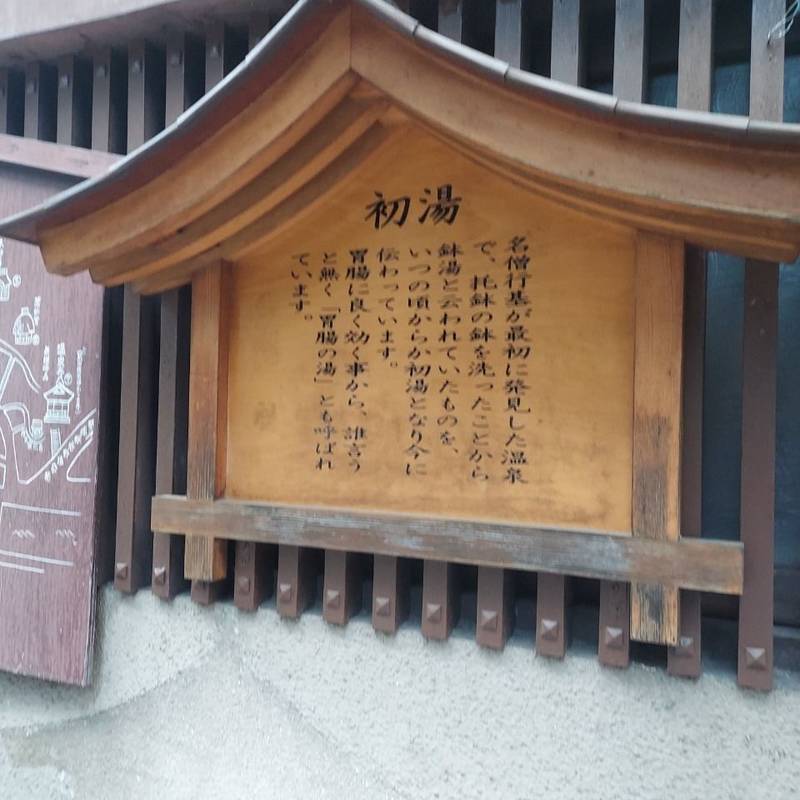 初湯
名僧行基が最初に発見した温泉
で、托鉢の鉢を洗ったことから
鉢湯と云われていたものを、
いつの頃からか初湯となり今に
伝わっています。
胃腸に良く効く事から、誰言う
と無く「胃腸の湯」とも呼ばれ
ています。